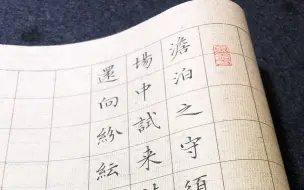 澹泊之守須
場中試来
還向紛紜